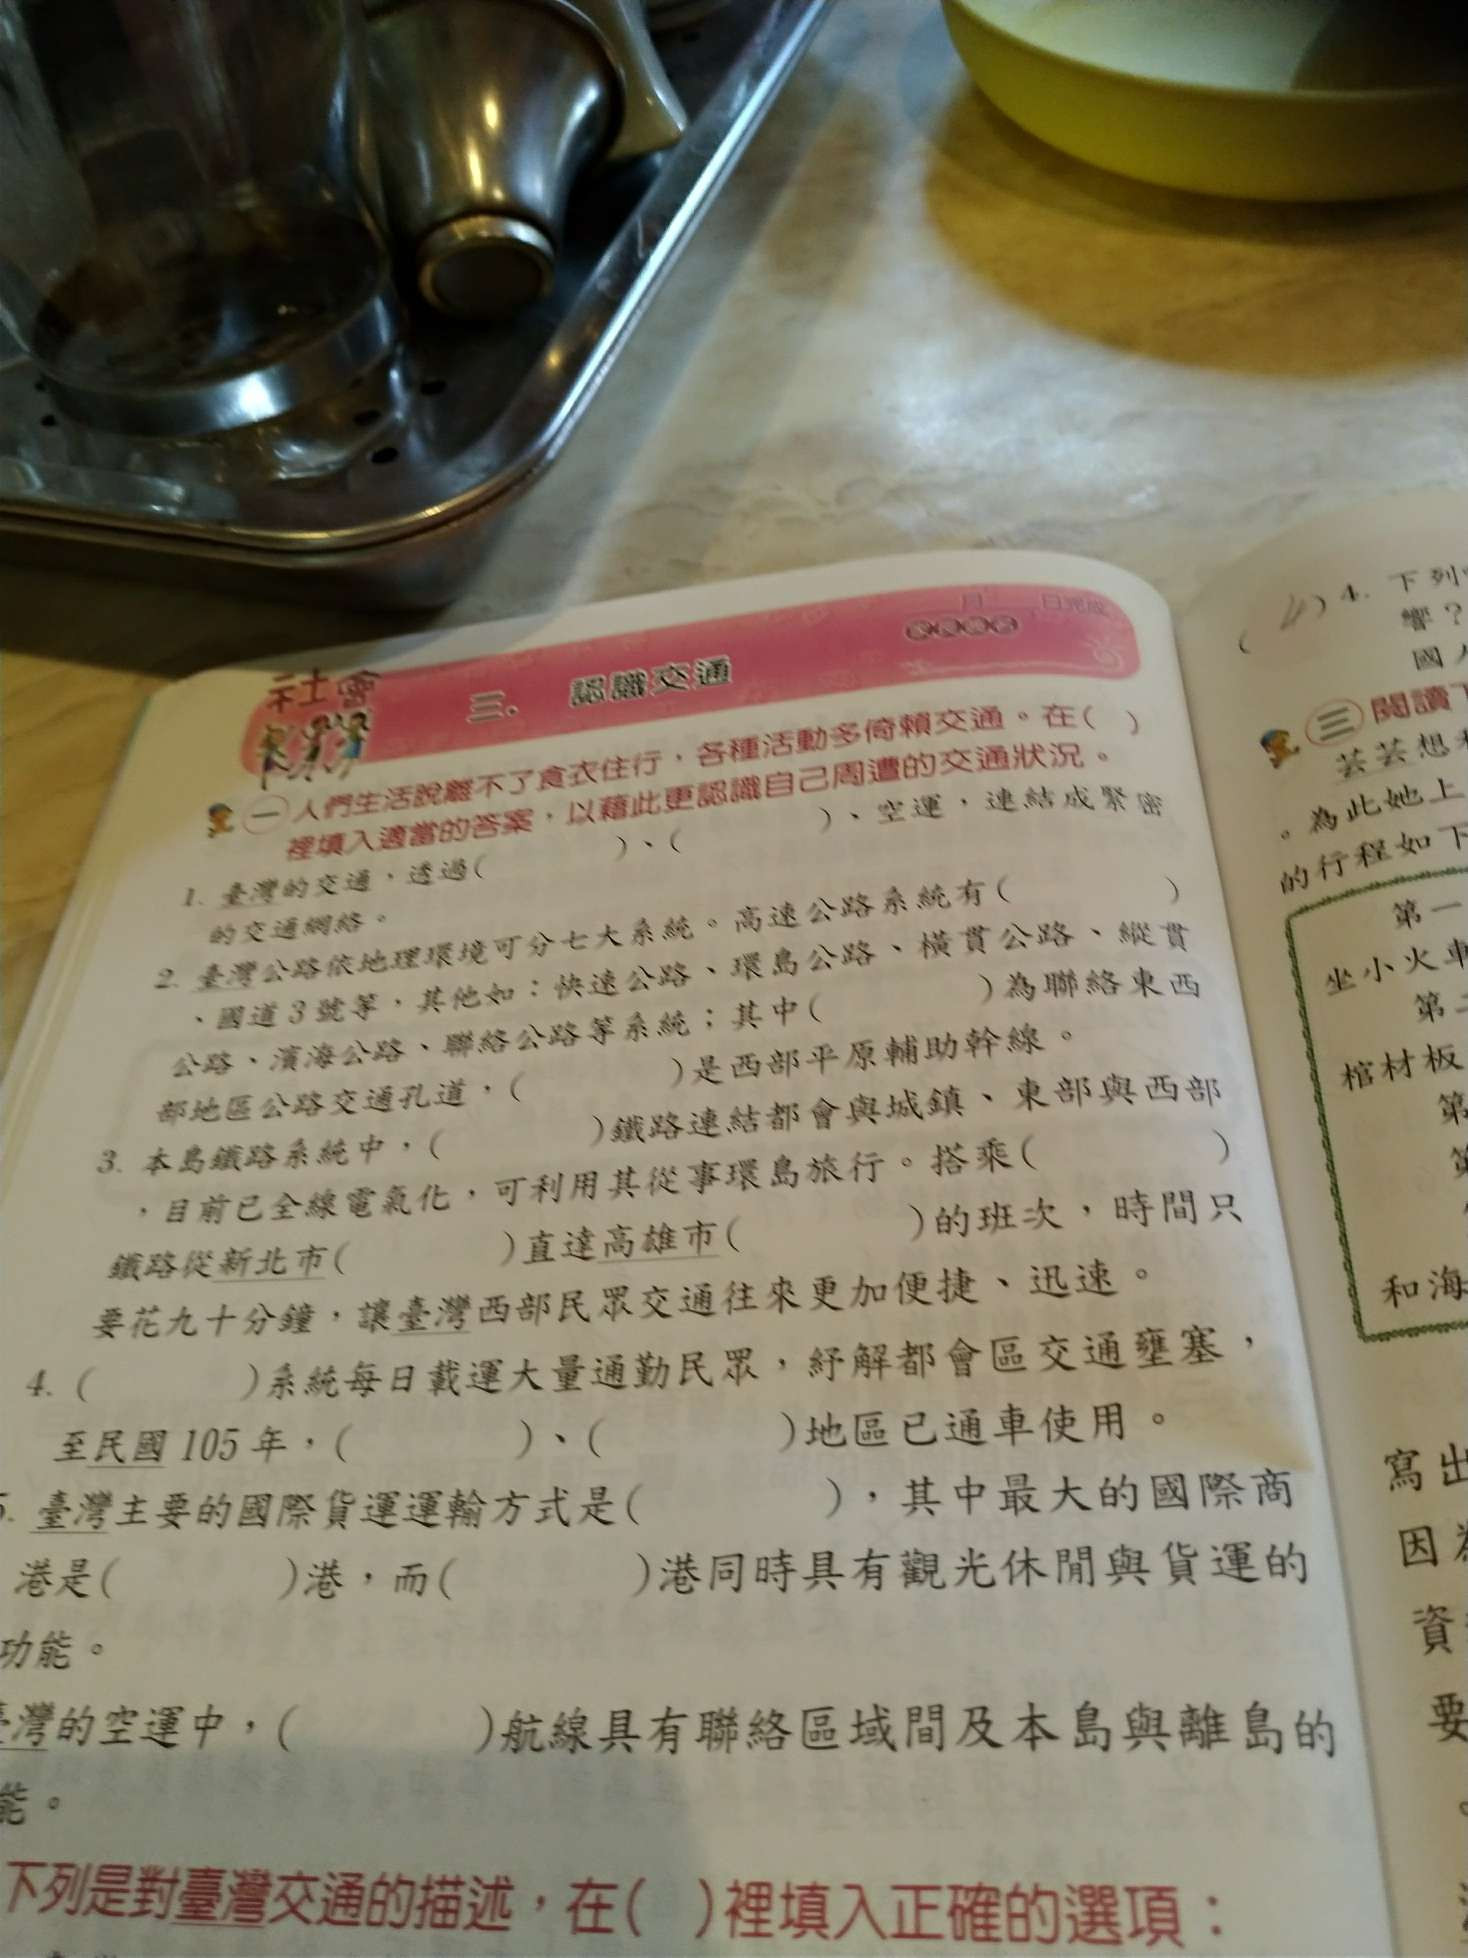 月 日完成
社會
三. 認識交通
一 人們生活說離不了食衣住行,各種活動多倚賴交通。在( )
裡填入適當的答案,以藉此更認識自己周遭的交通狀況。
1. 臺灣的交通,透過( )、( )、空運,連結成緊密
的交通網絡。
2. 臺灣公路依地理環境可分七大系統。高速公路系統有( )
、國道3號等,其他如:快速公路、環島公路、橫貫公路、縱貫
公路、濱海公路、聯絡公路等系統;其中( )為聯絡東西
部地區公路交通孔道,( )是西部平原輔助幹線。
3. 本島鐵路系統中,( )鐵路連結都會與城鎮、東部與西部
,目前已全線電氣化,可利用其從事環島旅行。搭乘( )
鐵路從新北市( )直達高雄市( )的班次,時間只
要花九十分鐘,讓臺灣西部民眾交通往來更加便捷、迅速。
4. ( )系統每日載運大量通勤民眾,紓解都會區交通壅塞,
至民國105年,( )、( )地區已通車使用。
5. 臺灣主要的國際貨運運輸方式是( ),其中最大的國際商
港是( )港,而( )港同時具有觀光休閒與貨運的
功能。
臺灣的空運中,( )航線具有聯絡區域間及本島與離島的
能。
下列是對臺灣交通的描述,在( )裡填入正確的選項:
( 4 ) 4. 下列
響?
國
三 閱讀
芸芸想
。為此她上
的行程如下
第一
坐小火車
第二
棺材板
第
第
和海
寫出
因為
資
要